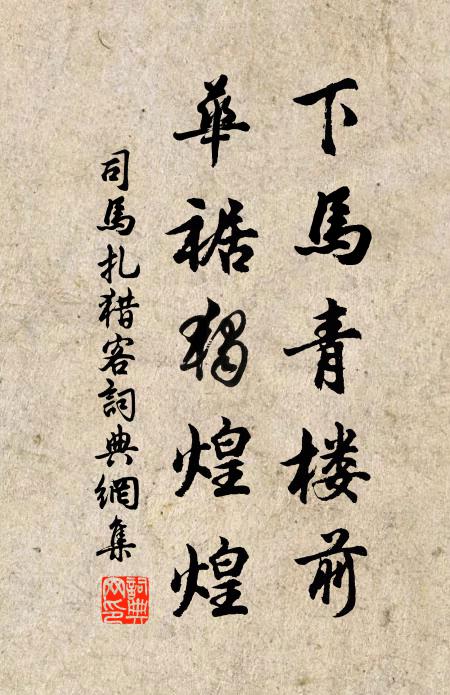 下馬青楼前
華裾獨煌煌
司馬扎猎客詞典網集